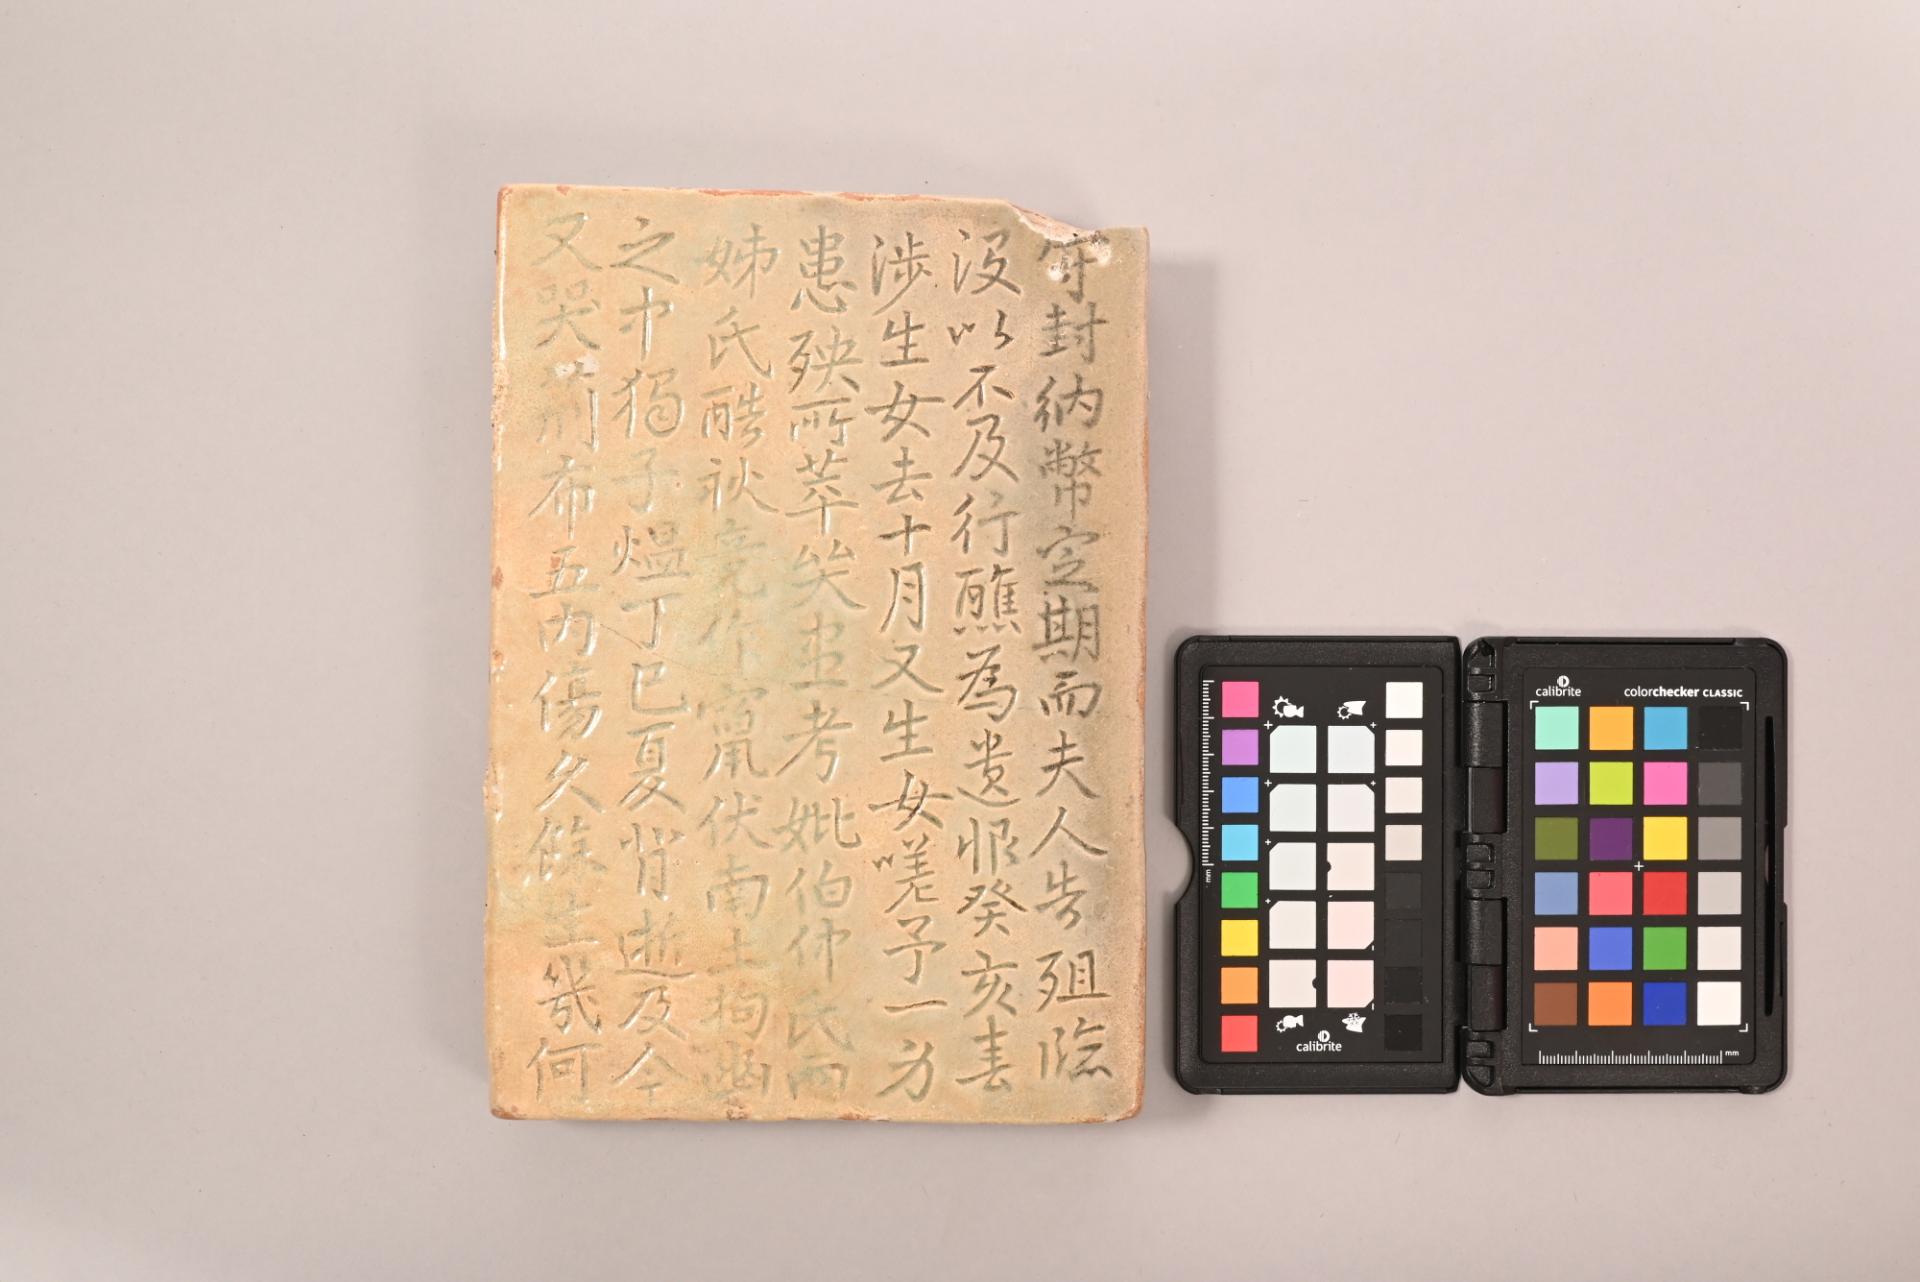 守封納幣定期而夫人告殂臨
沒以不及行醮為遺恨癸亥春
涉生女去十月又生女嗟予一身
患殃所萃矣出考妣伯仲氏兩
姊氏酷秋竟作竄伏南土拘幽
之中獨子煴丁巳夏背逝及今
又哭荊布五內傷久餘生幾何
calibrite
calibrite
colorchecker CLASSIC
mm
mm